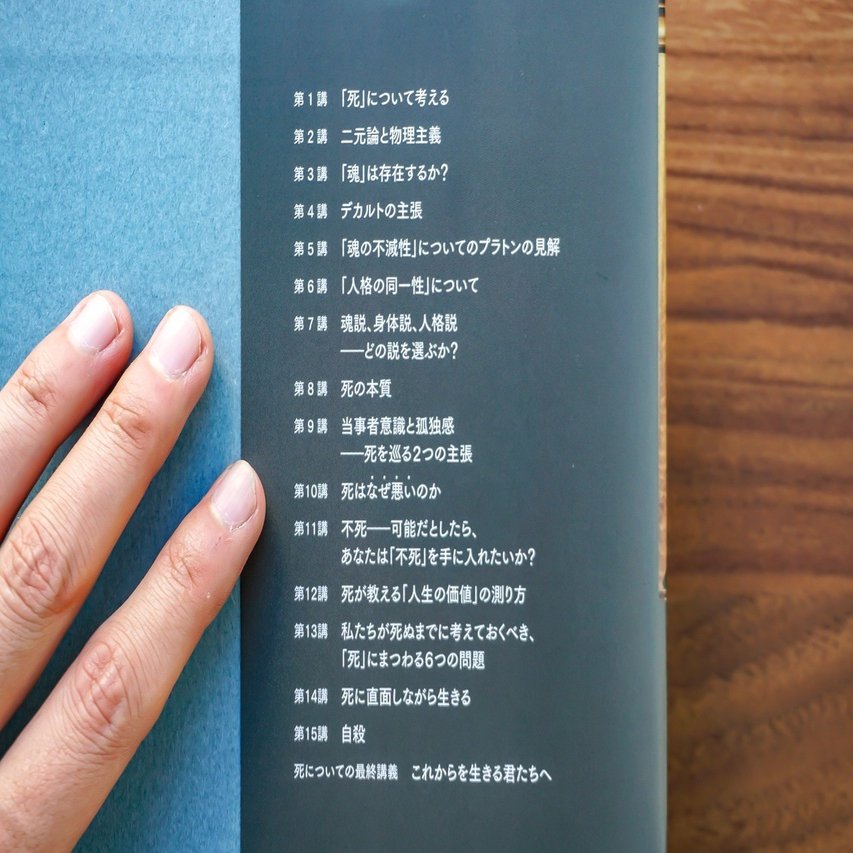 第1講 「死」について考える
第2講 二元論と物理主義
第3講 「魂」は存在するか?
第4講 デカルトの主張
第5講 「魂の不滅性」についてのプラトンの見解
第6講 「人格の同一性」について
第7講 魂説、身体説、人格説
──どの説を選ぶか?
第8講 死の本質
第9講 当事者意識と孤独感
──死を巡る2つの主張
第10講 死はなぜ悪いのか
第11講 不死──可能だとしたら、
あなたは「不死」を手に入れたいか?
第12講 死が教える「人生の価値」の測り方
第13講 私たちが死ぬまでに考えておくべき、
「死」にまつわる6つの問題
第14講 死に直面しながら生きる
第15講 自殺
死についての最終講義 これからを生きる君たちへ